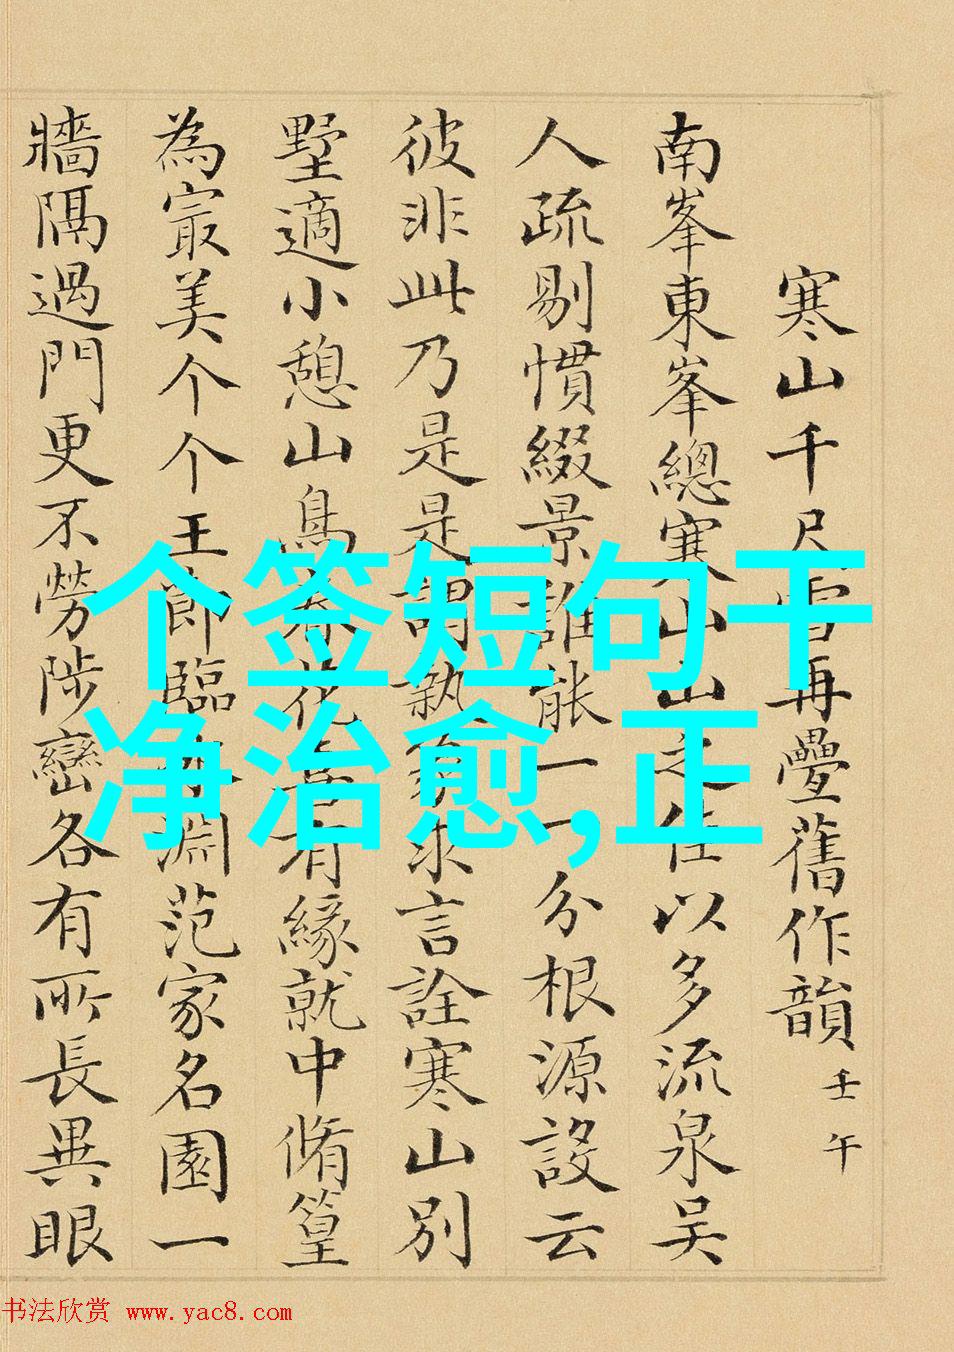 寒山千尺雪再疊舊作韻 壬午
南峯東峯總寒山山之佳以多流泉吴
人疏剔慣綴景誰能一一分根源設云
彼非此乃是是謂孰
言詮寒山别
墅適小憩山鳥
花
有緣就中脩篁
為寂美个个王郎臨
淵范家名園一
牆隔過門更不勞陟巒各有所長異眼
个签短句干
净治愈,正
书法欣赏 www.yac8.com